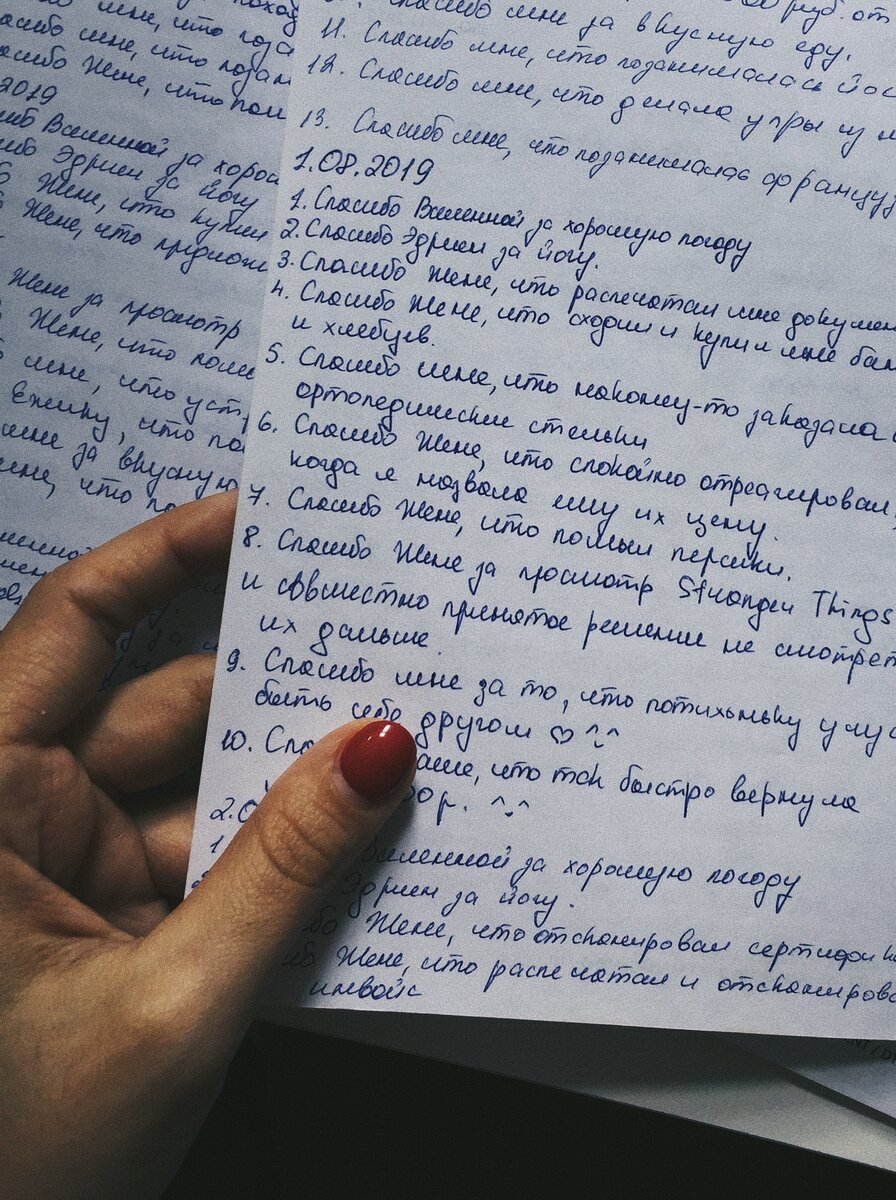 похо
мне, что поза
асибо мне, что позан
асибо Жене, что пом
2019
ибо Вселенной за хорош
ибо Эдриен за йогу
Жене, что купил
Жене, что предлож
Жене за просмотр
Жене, что помы
мне, что уст
Ежику, что по
мне за вкусную
мне, что по
руб. от
Спасибо мне за вкусную еду.
11. Спасибо мне, что позанималась йог
12. Спасибо мне, что делала упры из
13. Спасибо мне, что позанималась француз
1.08.2019
1. Спасибо Вселенной за хорошую погоду
2. Спасибо Эдриен за йогу.
3. Спасибо Жене, что распечатал мне докумен
4. Спасибо Жене, что сходил и купил мне бан
и хлебцев.
5. Спасибо мне, что наконец-то заказала
ортопедические стельки
6. Спасибо Жене, что спокойно отреагировал,
когда я назвала ему их цену.
7. Спасибо Жене, что помыл персики.
8. Спасибо Жене за просмотр Stranger Things
и совместно принятое решение не смотрет
их дальше.
9. Спасибо мне за то, что потихоньку учус
быть себе другом ♡ ^_^
10. Спа аше, что так быстро вернула
00р. ^_^
2.0
1 Вселенной за хорошую погоду
Эдриен за йогу.
бо Жене, что отсканировал сертифик
ибо Жене, что распечатал и отсканирова
инвойс